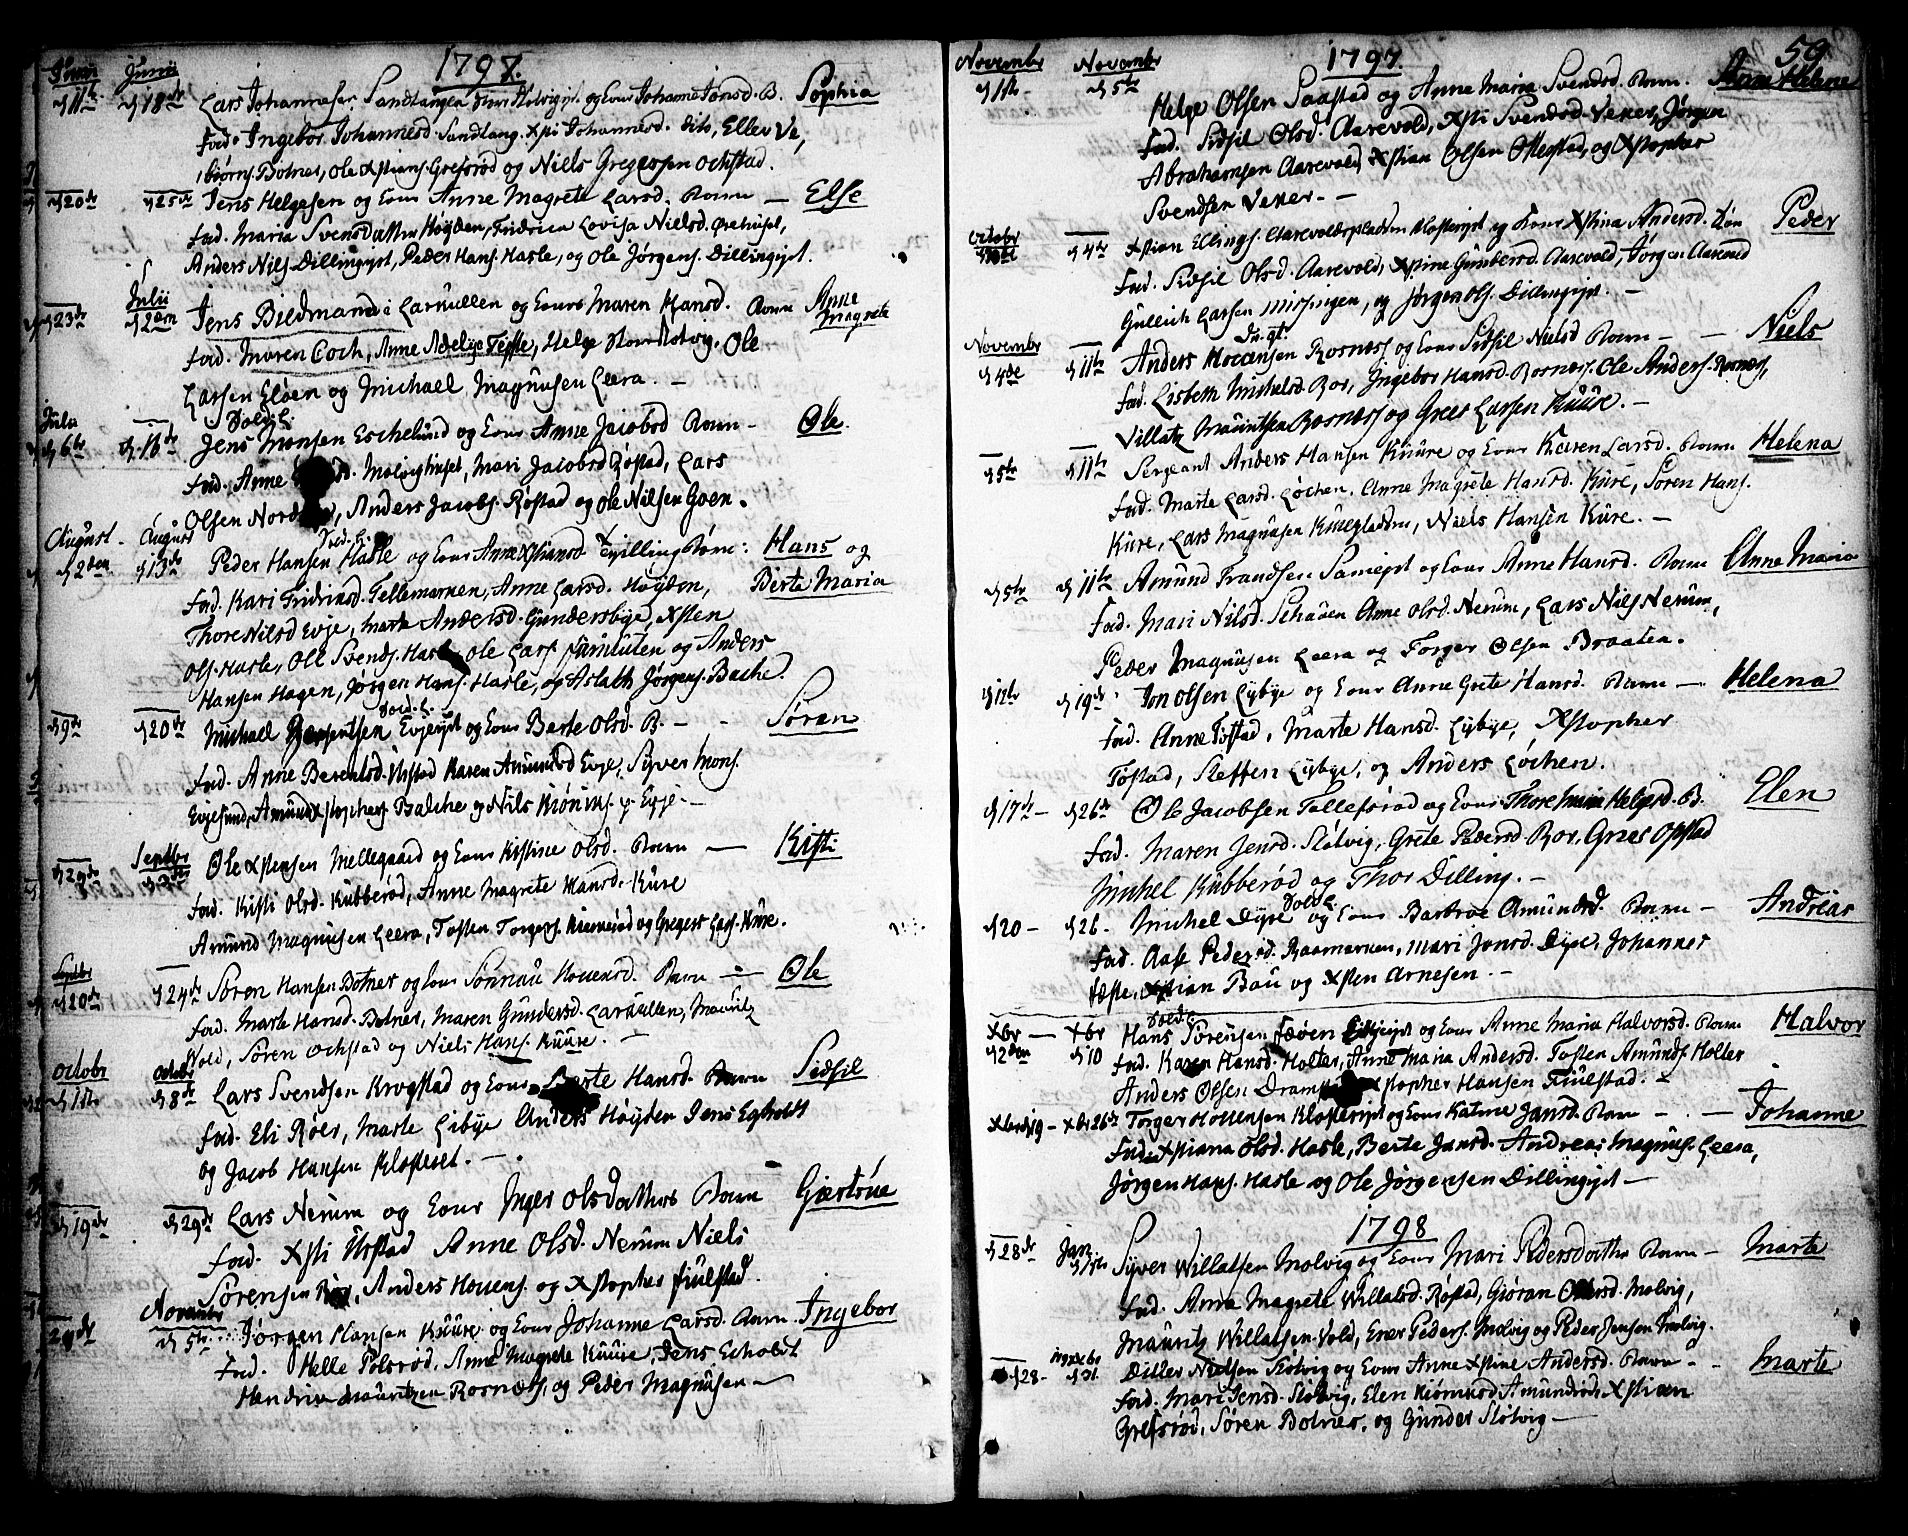 1797.
Junii Junii
d 11te d 18de Lars Johannesen Sandtangen og Hans Johanne Jonsd. B. Sophia
Fad. Ingebor Johannesd. Sandtang. Xsti Johannesd. dito, Ellev Ve,
biørns. Botner, Ole Xstians. Grefsrød og Niels Gregersen Ochstad.
d 20de d 25de Jens Helgesen og Hans Anne Magrete Larsd. Barn — Else
Fad. Maria Svensdatter Høyden, Fridrica Lovisa Nielsd. Ørehuset,
Anders Nils. Dillingøyst, Peder Hans. Hasle, og Ole Jørgens. Dillingøyst.
Julii
d 23de d 2den Jens Bildmand i Larkullen og Hans Maren Hansd. Barn Anne Magrete
Fad. Maren Coch, Anne Adelije Teiste, Helge Slotvig, Ole
Larsen Eløen og Michael Magnusen Leera. —
Julii
d 6te d. 16de Jens Monsen Eschelund og Hans Anne Jacobsd Barn — Ole.
Fad. Anne Moloshuset, Mari Jacobsd Røstad, Lars
Olsen Nord, Anders Jacobs. Røstad og Ole Nilsen Goen.
August. August
d 2den d 13de Peder Hansen Hasle og Hans Anne Xstiansd Tvilling Børn: Hans og
Fad. Kari Fridricsd. Tellemarken, Anne Larsd. Høyden, Berte Maria
Thore Nilsd Evje, Marte Andersd. Gundersbye, Xsten
Ols. Hasle, Ole Svends. Hasle, Ole Lars. og Anders
Hansen Hagen, Jørgen Hans. Hasle, og Aslach Jørgens. Bache.
d 9de d 20de Michael Evjeøyst og Hans Berte Olsd. B. — Søren
Fad. Anne Berentsd. Urstad Karen Amundsd Evje, Syver Mons.
Evjesund, Amund Xstophers Balche og Nils
Septbr
d 29de d 3die Ole Xstensen Mellegaard og Hans Kistine Olsd. Barn — Kisti
Fad. Kisti Olsd. Kubberød, Anne Magrete Hansd. Kure
Amund Magnusen Leera, Tosten Torgers. og Gregers Lars. Kure.
Septbr
d 20de d 24de Søren Hansen Botner og Hans Sonnau Hovensd. Barn — Ole
Fad. Marte Hansd. Botner, Maren Gundersd. Larkullen, Mauritz
Vold, Søren Ochstad og Niels Hans. Kuure. —
Octobr Octobr
d 1ste d 8de Lars Svendsen Krogstad og Hans Marte Hansd. Barn Sidsil
Fad. Eli Røer, Marte Libye Anders Høyden Jens Egholdt
og Jacob Hansen Klosteret. —
d 19de d 29de Lars Nerum og Hans Inger Olsdatters Barn Giertrue
Fad. Xsti Urstad Anne Olsd. Nerum Niels
Sørensen, Anders Hovens. og Xstopher Fiulstad.
Novembr
d 5te Jørgen Hansen Kuure og Hans Johanne Larsd. Barn Ingebor
Fad. Helle Polsrød. Anne Magrete Kuure, Jens Echoldt
Hendrich Mauritzen Rosnes, og Peder Magnusen —
1797. 59
Novembr Novembr
d 1ste d 5te Helge Olsen Saastad og Anne Maria Svendsd. Barn. Anne Helene
Fad. Sidsil Olsd. Aarevold, Xsti Svendsd Veker, Jørgen
Abrahamsen Aarevold, Xstian Olsen Ottestad, og Xstopher
Svendsen Veker. —
Octobr
d 4te Xstian Ellings. Aarevoldspladsen Klosteret og Hans Xstina Andersd. Søn Peder
Fad. Sidsil Olsd. Aarevold, Xstine Gundersd. Aarevold, Jørgen Aarevold
Gullich Larsen Missingen, og Jørgen Ols. Dillingøyst.
Novembr
d 4de d 11te Anders Hovensen Rosness og Hans Sidsil Nielsd Barn — Niels
Fad. Lisbeth Michelsd Roer, Ingebor Hansd. Rosnes. Ole Anders. Rosnes,
Villatz Mauritsen Rosness og Greer Larsen Kuure. —
d 5te d 11te Sergeant Anders Hansen Kuure og Hans Karen Larsd. Barn Helena
Fad. Marte Larsd. Løchen. Anne Magrete Hansd. Kure, Søren Hans.
Kure, Lars Magnusen Kurepladsen, Niels Hansen Kure. —
d 5te d 11te Amund Frandsen Sameyst og Hans Anne Hansd. Barn Anne Maria
Fad. Mari Nilsd. Schauen Anne Olsd. Nerum, Lars Nils. Nerum,
Peder Magnusen Leera og Torger Olsen Braaten.
d 12te d 19de Jon Olsen Lybye og Hans Anne Grete Hansd. Barn — Helena
Fad. Anne Tostad, Marte Hansd. Lybye, Xstopher
Tostad, Steffen Lybye, og Anders Løchen.
d 17de — d 26de Ole Jacobsen Tollefsrød og Hans Thore Marie Helgesd. B. Elen
Fad. Maren Jensd. Slotvig, Grete Pedersd Roer, Greer Opstad
Michel Kubberød og Thor Dilling. —
d 20 — d 26. Michel Dyse og Hans Barbroe Amundsd. Barn — Andreas
Fad. Aase Pedersd. Raamarken, Mari Jonsd. Dyse, Johannes
Teste, Xstian Bau og Xsten Arnesen. —
Xbr — Xbr
d 2den d 10 Hans Sørensen Evjeøyst og Hans Anne Maria Halvorsd. Barn Halvor
Fad. Karen Hansd. Holter, Anne Maria Andersd. Tosten Amunds. Holter
Anders Olsen Dram Xstopher Hansen Fiulstad. —
Xbr d 19 — Xbr 26de Torger Hovensen Klosterøyst og Hans Katrine Jansd. Barn — Johanne
Fad. Xstiana Olsd. Hasle, Berte Jansd. Andreas Magnus. Leera,
Jørgen Hans. Hasle og Ole Jørgensen Dillingøyst —
1798
d 28de Jan d 1ste Syver Willatsen Molvig og Hans Mari Pedersdatter Barn — Marte
Fad. Anna Magrete Willatsd. Røstad, Giøran Olsd. Molvig,
Mauritz Willatsen Vold, Ener Peders. Molvig og Peder Jensen
d 28 — d 31. Ditler Nielsen Slotvig og Hans Anne Xstine Andersd. Barn — Marte
Fad. Mari Jensd. Slotvig, Elen Amundrød, Xstian
Grefsrød, Søren Botner, og Gunder Slotvig —